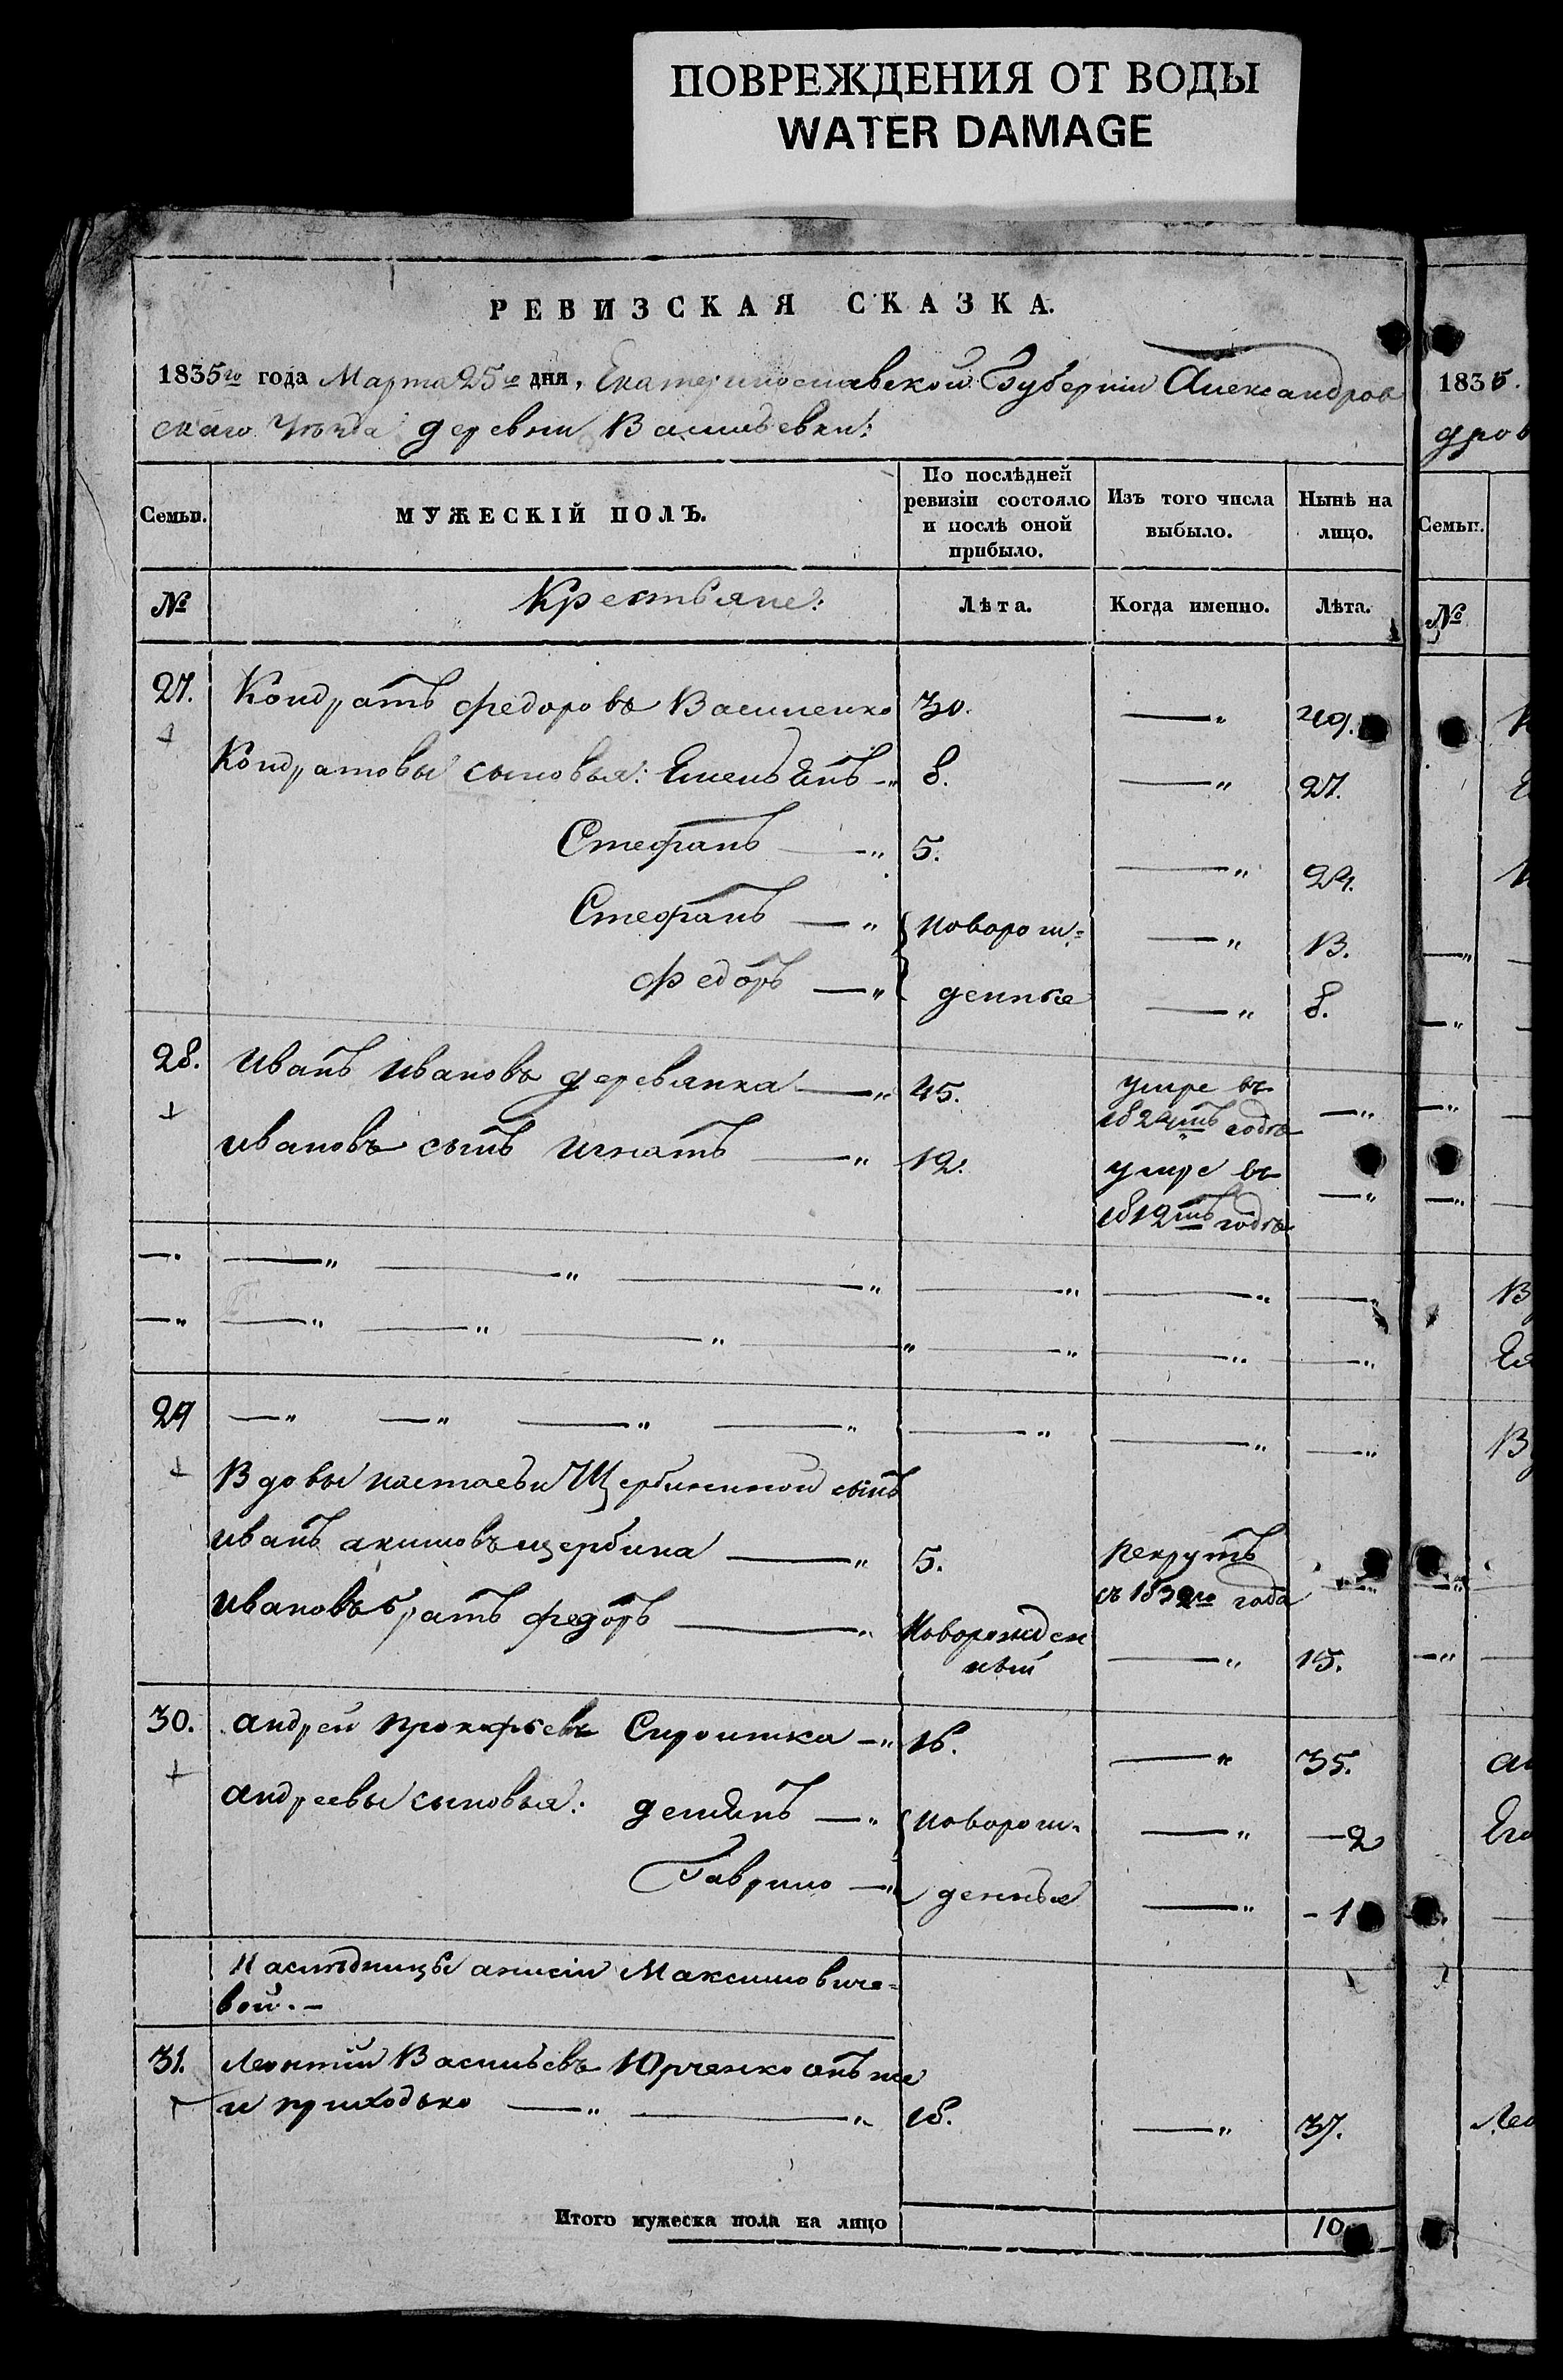 ПОВРЕЖДЕНИЯ ОТ ВОДЫ
WATER DAMAGE
РЕВИЗСКАЯ СКАЗКА.
1835го года Марта 25го дня, Екатеринославской Губерніи Александров
скаго Уѣзда деревни Васильевки:
Семьи. МУЖЕСКІЙ ПОЛЪ. По послѣдней ревизіи состояло и послѣ оной прибыло. Изъ того числа выбыло. Нынѣ на лицо.
№ Крестьяне: Лѣта. Когда именно. Лѣта.
27. Кондратъ Федоровъ Василенко 30. —„ 49.
Кондратовы сыновья: Емельянъ —„ 8. —„ 27.
Стефанъ —„ 5. —„ 24.
Стефанъ —„ новорож= —„ 13.
Федоръ —„ денные —„ 8.
28. Иванъ Ивановъ Деревянка —„ 45. умре въ
1824мъ годѣ —„
Ивановъ сынъ Игнатъ —„ 12. умре въ
1812мъ годѣ —„
29 —„ —„ —„ —„ —„ —„ —„
Вдовы Настасьи Щербининой сынъ
Иванъ Акимовъ Щербина —„ 5. Рекрутъ
съ 1832го года —„
Ивановъ братъ Федоръ —„ Новорожден
ный —„ 15.
30. Андрей Прокофьевъ Сиротка —„ 16. —„ 35.
Андреевы сыновья: Демьянъ —„ новорож- —„ —2
Гаврило —„ денные —„ -1
Наслѣдницы Анисіи Максимовиче=
вой.-
31. Леонтій Васильевъ Юрченко онъ же
и Приходько —„ —„ 18. —„ 37.
Итого мужеска пола на лицо 10
1835.
дров
Семьи.
№